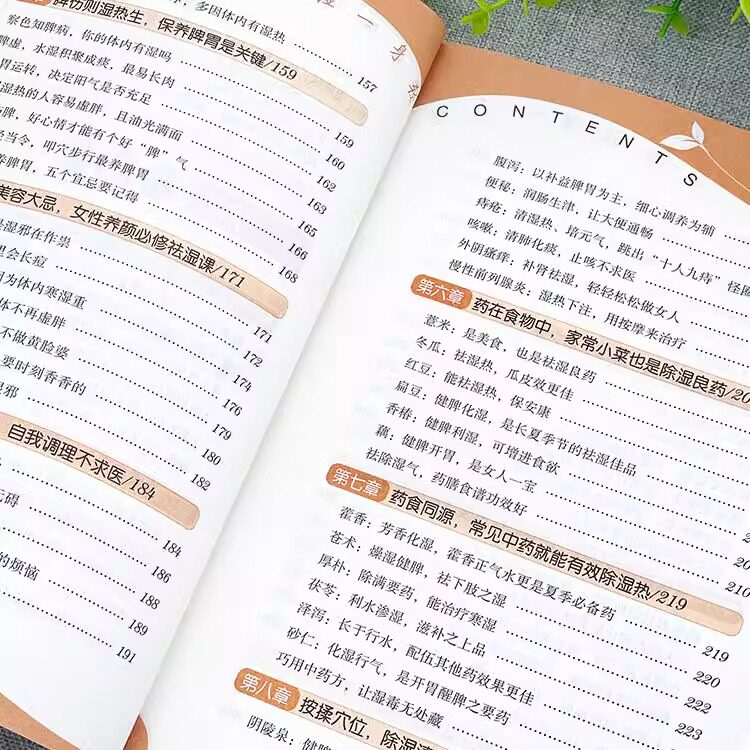 ，多因体内有湿热 157
脾伤则湿热生，保养脾胃是关键/159
察色知脾病，你的体内有湿吗 159
脾虚，水湿积聚成痰，最易长肉 160
胃运转，决定阳气是否充足 162
湿热的人容易虚胖，且油光满面 163
脾，好心情才能有个好“脾”气 165
当令，叩穴步行最养脾胃 166
养脾胃，五个宜忌要记得 168
美容大忌，女性养颜必修祛湿课/171
是湿邪在作祟 171
里会长痘 172
因为体内寒湿重 174
体不再虚胖 176
不做黄脸婆 179
要时刻香香的 180
湿邪 182
自我调理不求医/184
无碍 184
186
的烦恼 188
189
191
CONTENTS
腹泻：以补益脾胃为主，细心调养为辅
便秘：润肠生津，让大便通畅
痔疮：清湿热、培元气，跳出“十人九痔”怪圈
咳嗽：清肺化痰，止咳不求医
外阴瘙痒：补肾祛湿，轻轻松松做女人
慢性前列腺炎：湿热下注，用按摩来治疗
第六章 药在食物中，家常小菜也是除湿良药/20
薏米：是美食，也是祛湿良药
冬瓜：祛湿热，瓜皮效更佳
红豆：能祛湿热，保安康
扁豆：健脾化湿，是长夏季节的祛湿佳品
香椿：健脾利湿，可增进食欲
藕：健脾开胃，是女人一宝
祛除湿气，药膳食谱功效好 210
第七章 药食同源，常见中药就能有效除湿热/219
藿香：芳香化湿，藿香正气水更是夏季必备药 219
苍术：燥湿健脾，祛下肢之湿 220
厚朴：除满要药，能治疗寒湿
茯苓：利水渗湿，滋补之上品 222
泽泻：长于行水，配伍其他药效果更佳 223
砂仁：化湿行气，是开胃醒脾之要药
巧用中药方，让湿毒无处藏
第八章 按揉穴位，除湿
阴陵泉：健脾